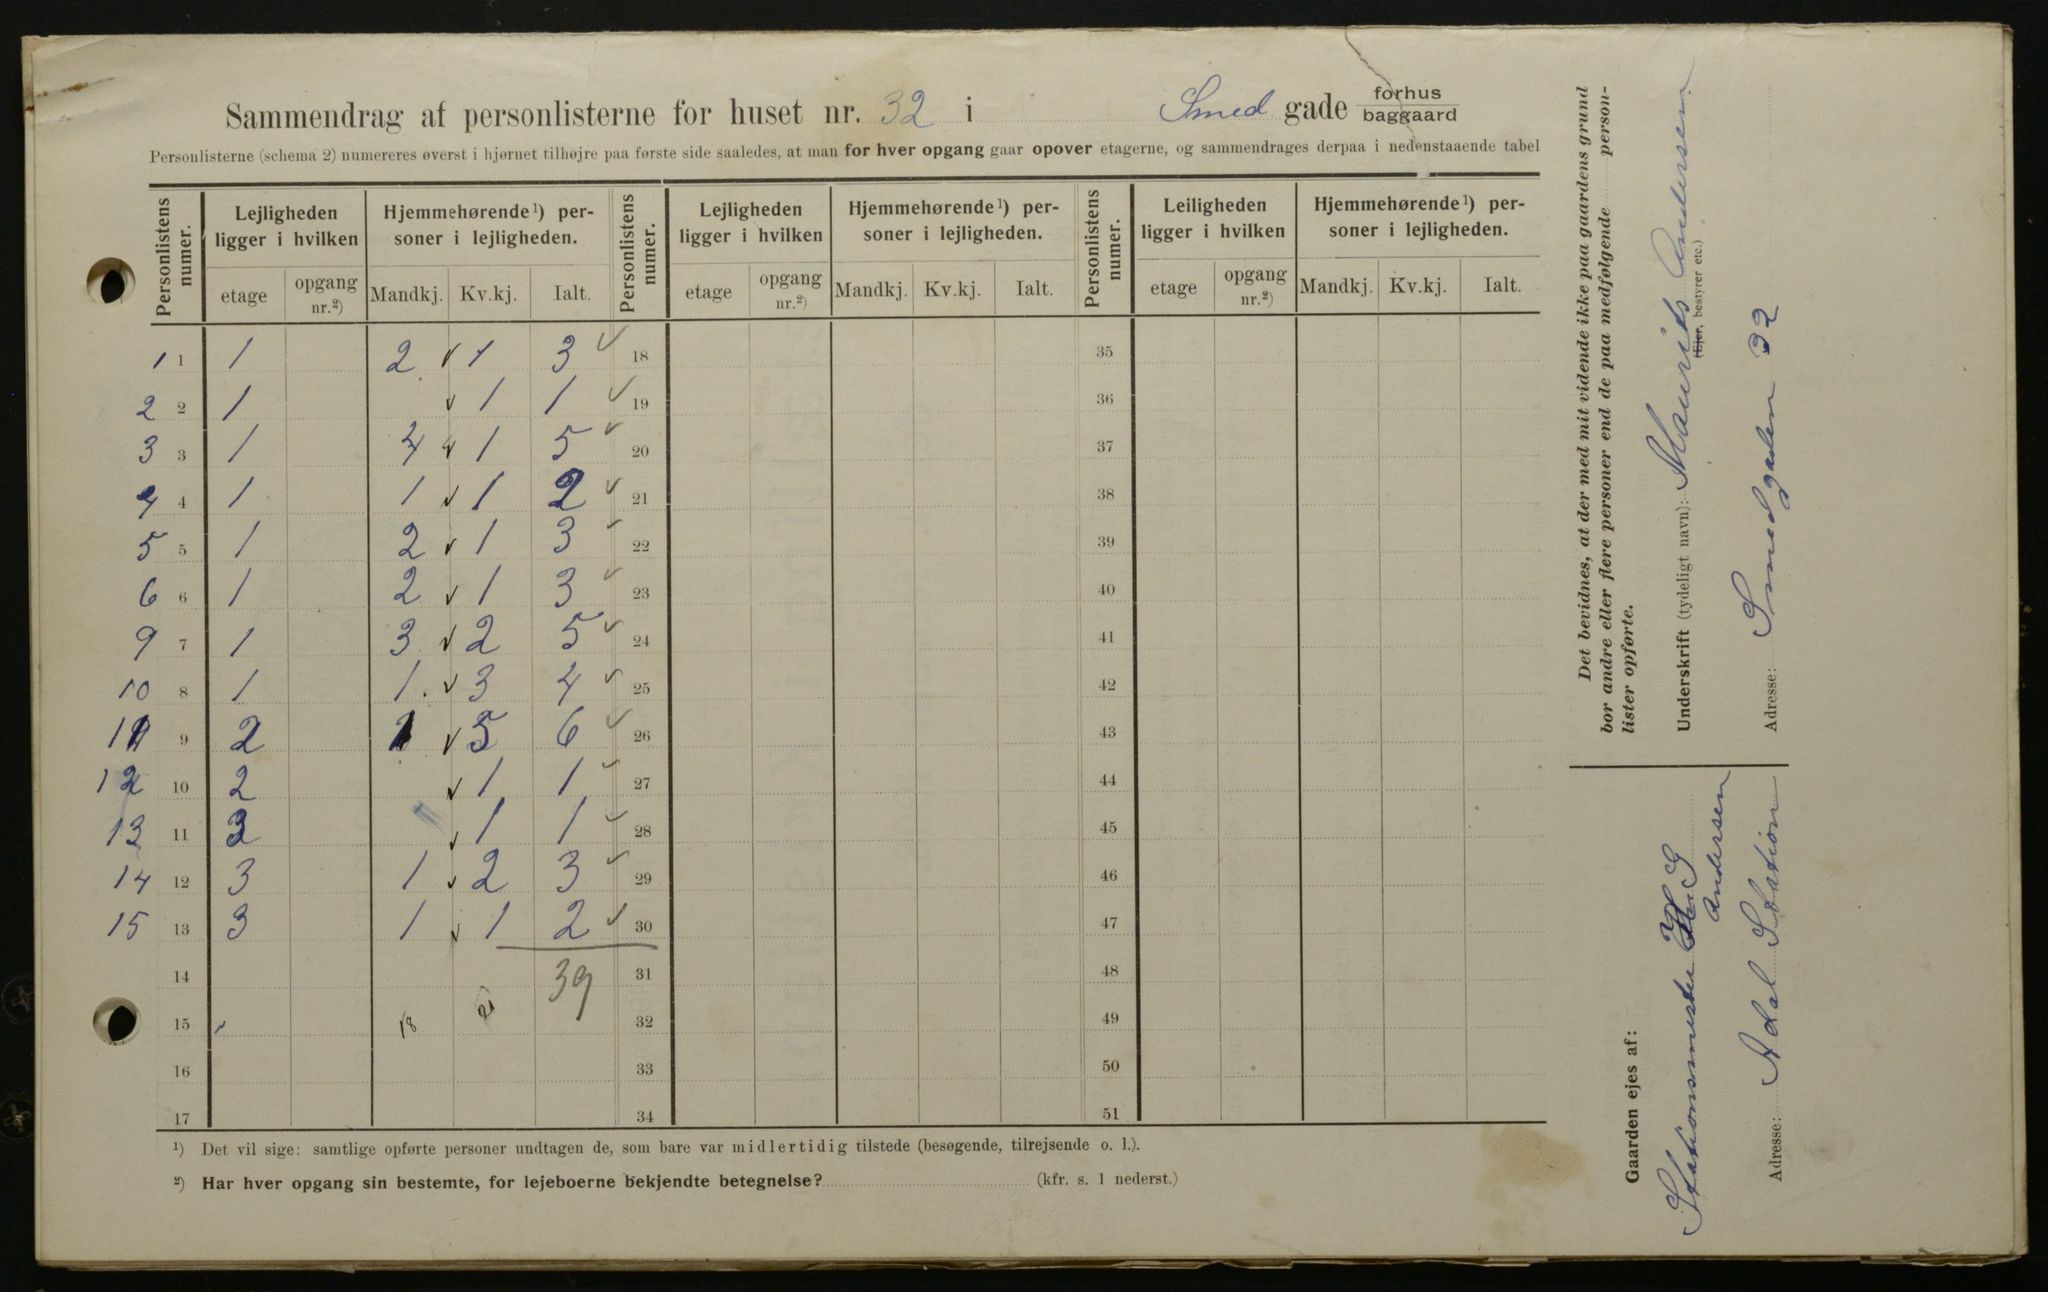 Sammendrag af personlisterne for huset nr. 32 i Smed gade forhus
baggaard
Personlisterne (schema 2) numereres øverst i hjørnet tilhøjre paa første side saaledes, at man for hver opgang gaar opover etagerne, og sammendrages derpaa i nedenstaaende tabel
Personlistens numer. Lejligheden ligger i hvilken Hjemmehørende¹) personer i lejligheden. Personlistens numer. Lejligheden ligger i hvilken Hjemmehørende¹) personer i lejligheden. Personlistens numer. Leiligheden ligger i hvilken Hjemmehørende¹) personer i lejligheden.
etage opgang nr.²) Mandkj. Kv.kj. Ialt. etage opgang nr.²) Mandkj. Kv.kj. Ialt. etage opgang nr.²) Mandkj. Kv.kj. Ialt.
1 1 1 2 1 3 18 35
2 2 1 1 1 19 36
3 3 1 4 1 5 20 37
4 4 1 1 1 2 21 38
5 5 1 2 1 3 22 39
6 6 1 2 1 3 23 40
9 7 1 3 2 5 24 41
10 8 1 1 3 4 25 42
11 9 2 1 5 6 26 43
12 10 2 1 1 27 44
13 11 1 1 28 45
14 12 3 1 2 3 29 46
15 13 3 1 1 2 30 47
14 39 31 48
15 18 21 32 49
16 33 50
17 34 51
¹) Det vil sige: samtlige opførte personer undtagen de, som bare var midlertidig tilstede (besøgende, tilrejsende o. l.).
²) Har hver opgang sin bestemte, for lejeboerne bekjendte betegnelse? (kfr. s. 1 nederst.)
Det bevidnes, at der med mit vidende ikke paa gaardens grund
bor andre eller flere personer end de paa medfølgende personlister opførte.
Underskrift (tydeligt navn): Maurits Andersen
(Ejer, bestyrer etc.)
Adresse: Smedgaden 32
Gaarden ejes af:
Stationsmester
Andersen
Adresse: Adal Station